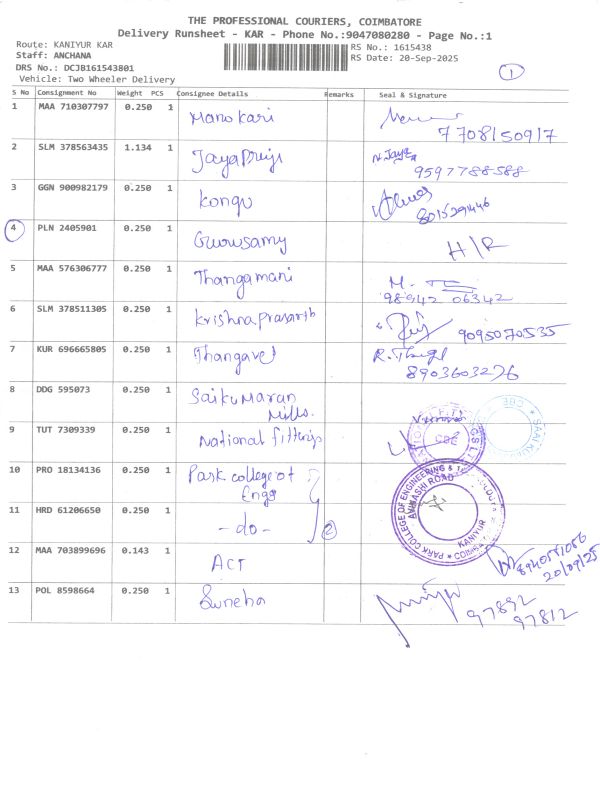 THE PROFESSIONAL COURIERS, COIMBATORE
Delivery Runsheet - KAR - Phone No.:9047080280 - Page No.:1
Route: KANIYUR KAR
RS No.: 1615438
Staff: ANCHANA
RS Date: 20-Sep-2025
DRS No.: DCJB161543801
Vehicle: Two Wheeler Delivery
1
S No Consignment No Weight PCS Consignee Details Remarks Seal & Signature
1 MAA 710307797 0.250 1 Manokari
7708150917
2 SLM 378563435 1.134 1 Jayapriya N. Jaya
9597788588
3 GGN 900982179 0.250 1 Kongu
4 PLN 2405901 0.250 1 Gurusamy H/R
5 MAA 576306777 0.250 1 Thangamani M.
98942 06342
6 SLM 378511305 0.250 1 Krishna prasanth 9095070535
7 KUR 696665805 0.250 1 Thangavel R.
8903603276
8 DDG 595073 0.250 1 Saikumaran
Mills.
9 TUT 7309339 0.250 1 National fittings
CBE
10 PRO 18134136 0.250 1 Park college of
Engg
PARK COLLEGE OF ENGINEERING &
AVINASHI ROAD
KANIYUR
11 HRD 61206650 0.250 1 -do- 2
12 MAA 703899696 0.143 1 ACT
20/09/25
13 POL 8598664 0.250 1 Suneha 97892
97812